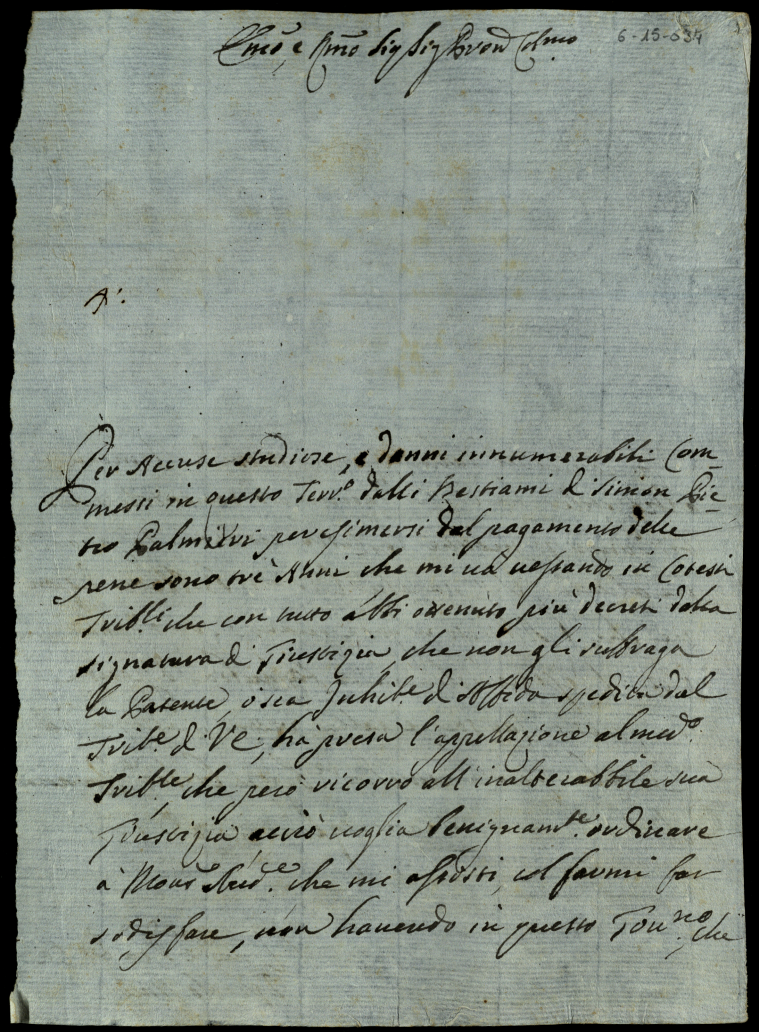 Emo, e Rmo Sig Sig Pron Colmo
6-15-034
A.
Per Accuse studiose, e danni innumerabili Com-
messi in questo Terr.o dalli Bestiami di Simon Pie-
tro Palmieri per esimersi dal pagamento delle
pene sono trè Anni che mi và vessando in Cotesti
Trib.li che con tutto abbi ottenuto più decreti dalla
Signatura di Giustizia, che non gli suffraga
la Patente, ò sia Inhib.e d'Affida spedita dal
Trib.e d. VE, hà presa l'appellazione al med.o
Trib.le, che però ricorro all'inalterabbile sua
Giustizia acciò voglia benignam.te ordinare
à Mons.e Aud.e che mi assisti, col farmi far
sodisfare, non havendo in questo Gov.no, che